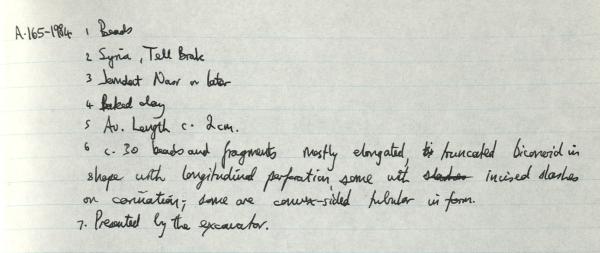 A.165-1984 1 Beads
2 Syria, Tell Brak
3 Jemdet Nasr or later
4 Baked clay
5 Av. Length c. 2cm.
6 c. 30 beads and fragments mostly elongated, truncated biconoid in
shape with longitudinal perforation, some with slashes incised slashes
on carination; some are convex-sided tubular in form.
7. Presented by the excavator.